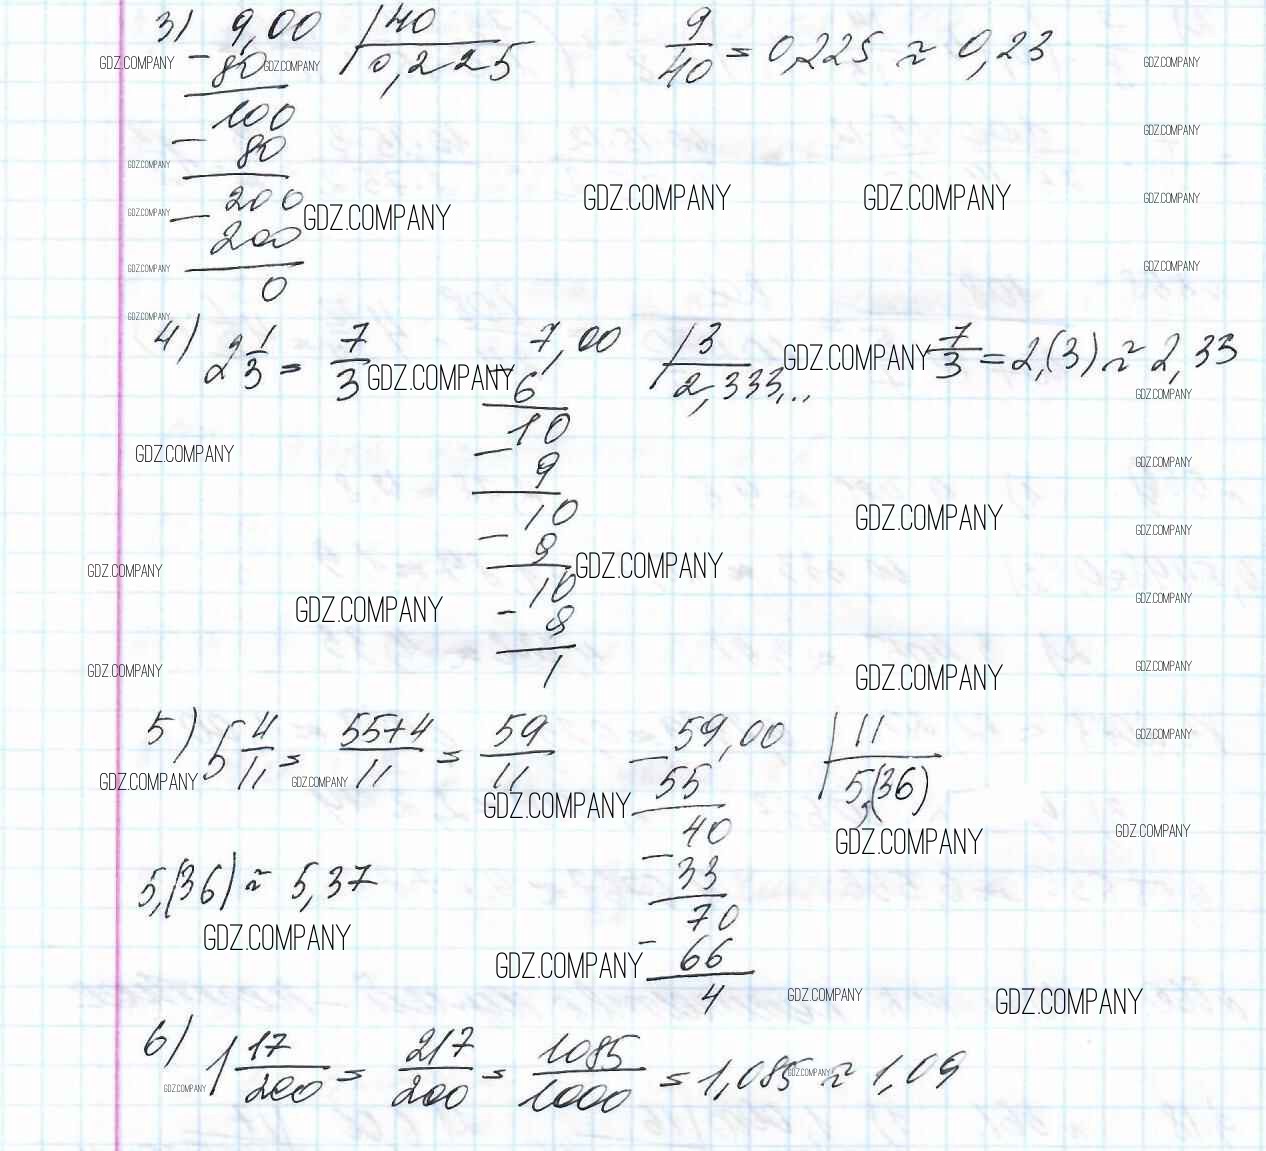 3) 9,00 | 40 9/40 = 0,225 ≈ 0,23
GDZ.COMPANY - 80 GDZ.COMPANY 0,225 GDZ.COMPANY
100 GDZ.COMPANY
- 80
GDZ.COMPANY
200 GDZ.COMPANY GDZ.COMPANY GDZ.COMPANY
GDZ.COMPANY - 200 GDZ.COMPANY
GDZ.COMPANY GDZ.COMPANY
0
GDZ.COMPANY
4) 2 1/3 = 7/3 7,00 | 3 GDZ.COMPANY 7/3 = 2,(3) ≈ 2,33
GDZ.COMPANY - 6 2,333... GDZ.COMPANY
10
GDZ.COMPANY - 9 GDZ.COMPANY
10 GDZ.COMPANY
- 9 GDZ.COMPANY
GDZ.COMPANY GDZ.COMPANY
10 GDZ.COMPANY
GDZ.COMPANY - 9
GDZ.COMPANY 1 GDZ.COMPANY GDZ.COMPANY
5) 5 4/11 = 55+4/11 = 59/11 59,00 | 11 GDZ.COMPANY
GDZ.COMPANY GDZ.COMPANY GDZ.COMPANY - 55 5,(36)
40 GDZ.COMPANY GDZ.COMPANY
5,(36) ≈ 5,37 - 33
70
GDZ.COMPANY
GDZ.COMPANY - 66
4 GDZ.COMPANY GDZ.COMPANY
6) 1 17/200 = 217/200 = 1085/1000 = 1,085 ≈ 1,09
GDZ.COMPANY GDZ.COMPANY